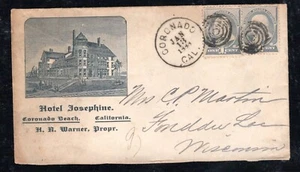 CORONADO
JAN
CAL.
Hotel Josephine.
Coronado Beach. California.
H. R. Warner, Propr.
Mrs C. P. Martin
Fond du Lac
Wisconsin